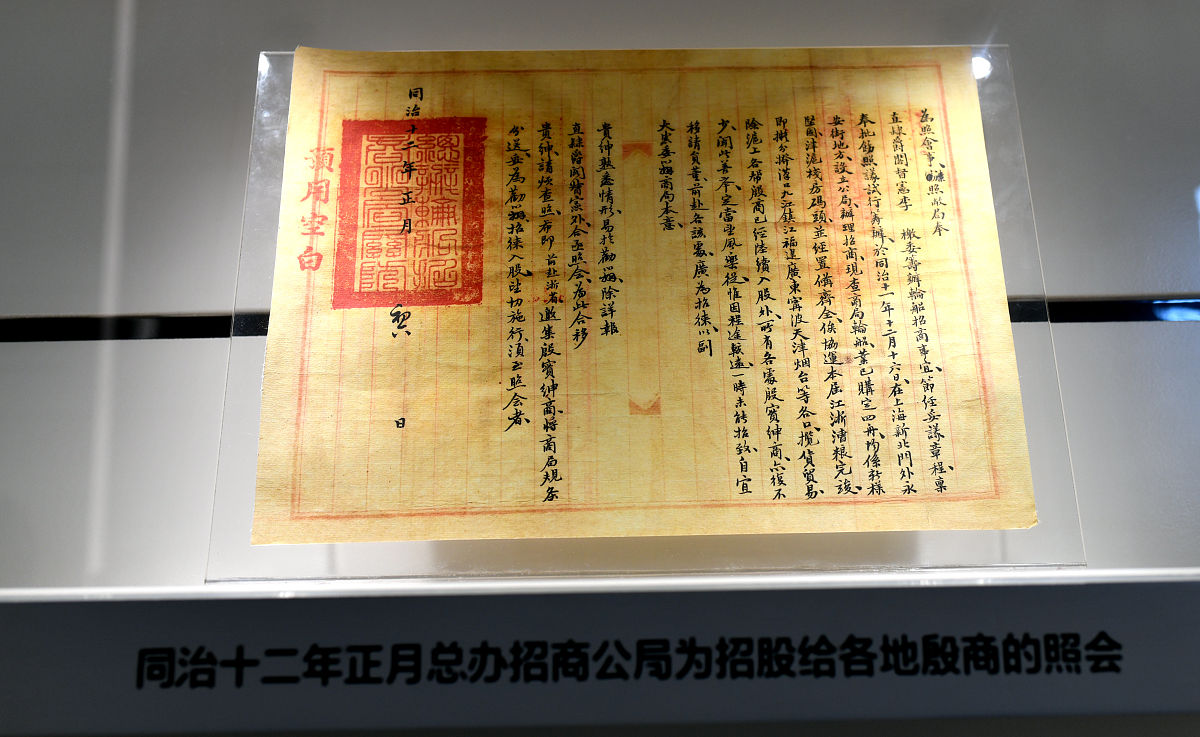 為照會事、照得敝局奉
直隸爵閣督憲李 檄委籌辦輪船招商事宜、節經妥議章程、稟
奉批飭照議試行籌辦、於同治十一年十二月十六日、在上海新北門外永
安街地方、設立公局、辦理招商、現查商局輪船、業已購定四舟、均係新樣
堅固、津滬棧房碼頭、並經置備齊全、俟協運本屆江浙漕粮完竣、
即擬分撥漢口九江鎮江福建廣東寧波天津烟台等各口、攬貨貿易、
除滬上各幫股商已經陸續入股外、所有各處殷實紳商、亦復不
少、聞此善舉、定當望風樂從、惟因程途較遠、一時未能招致、自宜
移請貴董、前赴各該處、廣為招徠、以副
大憲委辦商局本意、
貴紳熟悉情形、易於勸辦、除詳報
直隸爵閣督憲外、合亟照會、為此合移
貴紳、請煩查照、希即前赴浙省、邀集殷實紳商、將商局規條
分送、並為勸辦招徠入股、望切施行、須至照會者、
同治十二年正月 初六 日
預用空白
同治十二年正月总办招商公局为招股给各地殷商的照会